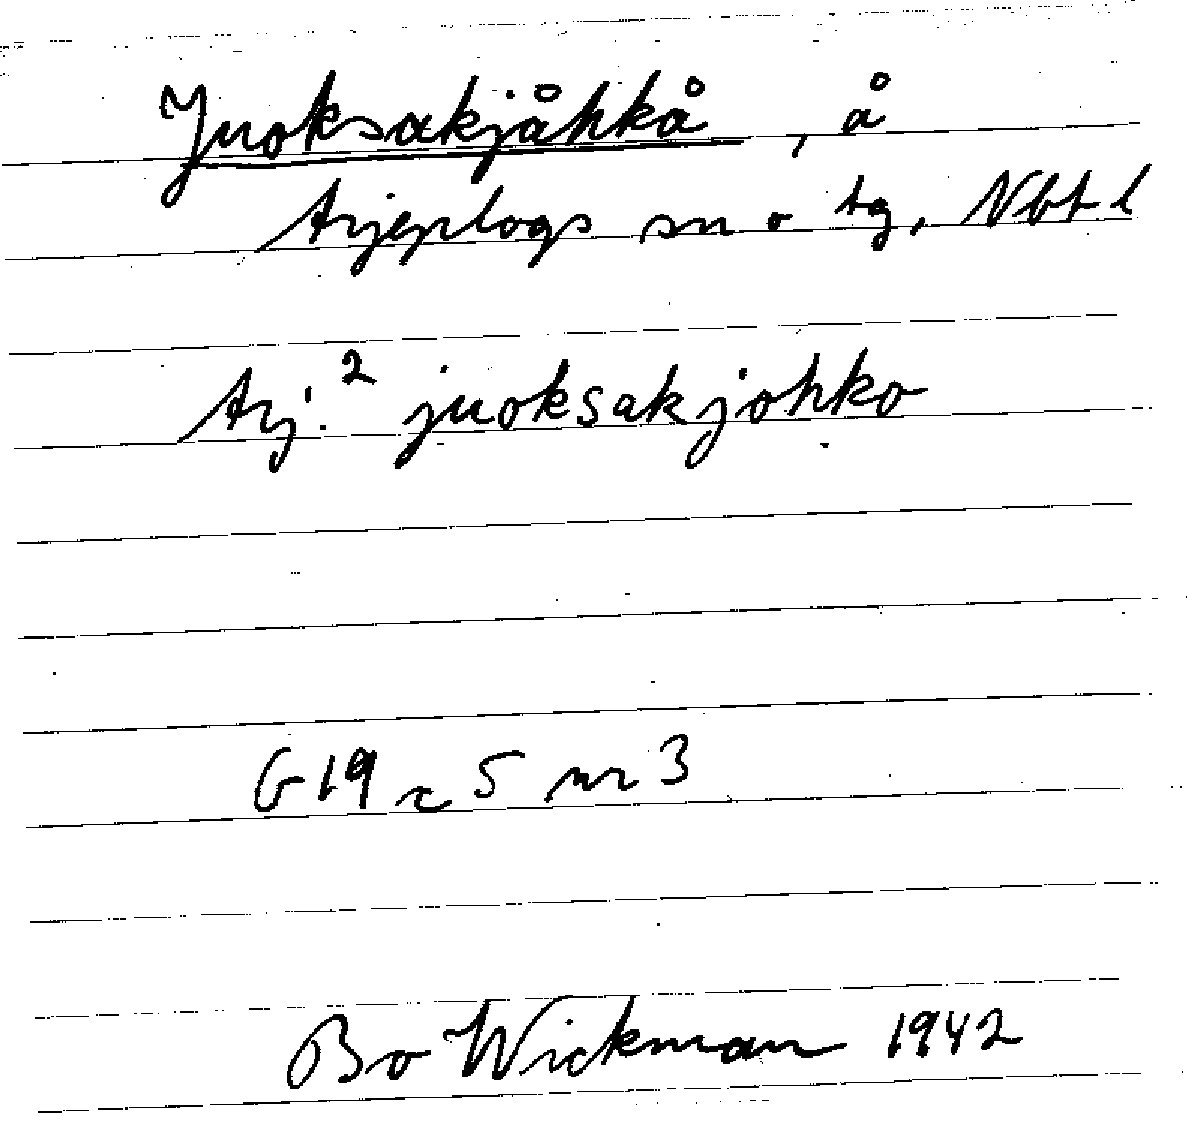 Juoksakjåhkå, å
Arjeplogs sn o tg, Nbt l
Arj.² juoksakjohko
G 19 c 5 nr 3
Bo Wickman 1942